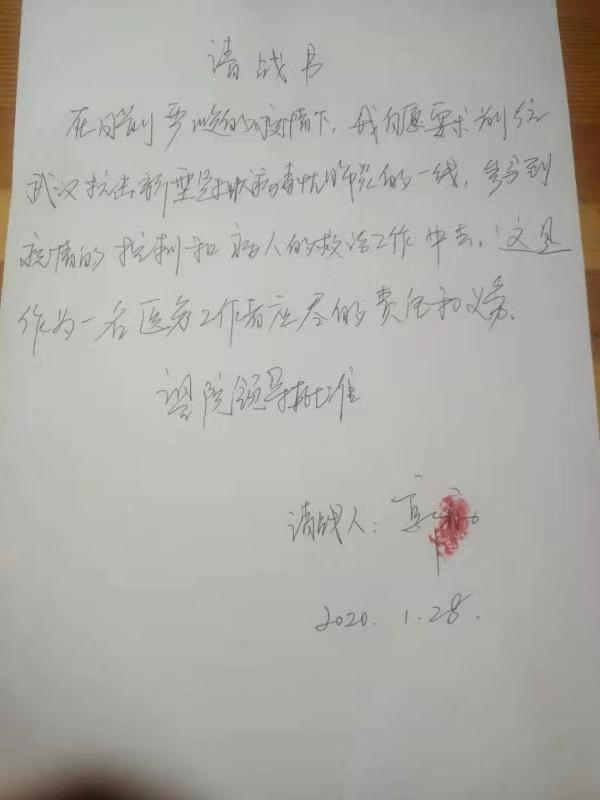 请战书
在目前严峻的疫情下，我自愿要求前往
武汉抗击新型冠状病毒性肺炎的一线，参与到
疫情的控制和病人的救治工作中去。这是
作为一名医务工作者应尽的责任和义务。
望院领导批准
请战人：
2020.1.28.